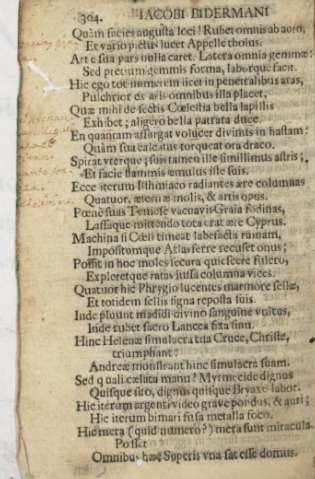 304. IACOBI BIDERMANI
Quàm facies augusta loci! Rubet omnis ab auro,
Et vario pictus lucet Appelle tholus.
Arte sua pars nulla caret. Latera omnia gemmæ:
Sed pretium gemmis forma, laborque facit.
Hic ego tot numerem licet in penetralibus aras,
Pulchrior ex aris omnibus illa placet,
Quæ mihi de sectis Cœlestia bella lapillis
Exhibet; aligero bella patrata duce.
En quantam assurgat volucer divinus in hastam:
Quàm sua calcatus torqueat ora draco.
Spirat vterque; suis tamen ille simillimus astris;
Et facie flammis æmulus iste suis.
Ecce iterum Isthmiaco radiantes ære columnas
Quatuor, molis, & artis opus.
Pœnè suas Temese vacuavit Graia fodinas,
Lassaque mittendo tota erat ære Cyprus.
Machina si Cœli timeat labefacta ruinam,
Impositumque Atlas ferre recuset onus;
Possit in hoc moles secura quiescere fulcro,
Expleretque ratas iussa columna vices.
Quatuor hîc Phrygio lucentes marmore sellæ,
Et totidem sellis signa reposta suis.
Inde pluunt madidi divino sanguine vultus,
Inde rubet sacro Lancea fixa sinu.
Hinc Helenæ simulacra tua Cruce, Christe,
triumphant:
Andreæ monstrant hinc simulacra suam.
Sed quali cælata manu? Myrmecide dignus
Quisque suo, dignus quisque Bryaxe labor.
Hîc iterum argenti video grave pondus, & auri;
Hîc iterum bimari fusa metalla foco.
Hîc mera (quid numero?) mera sunt miracula.
Posset
Omnibus hæc Superis vna sat esse domus.